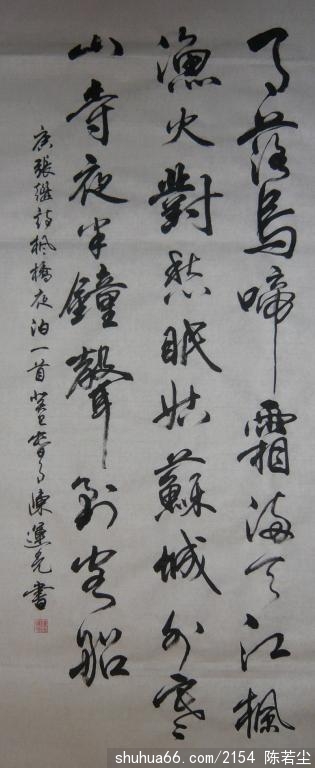 月落烏啼霜满天江楓
漁火對愁眠姑蘇城外寒
山寺夜半鐘聲到客船
唐張继詩楓橋夜泊一首癸巳春月陳運元書
shuhua66.com/2154 陈若尘